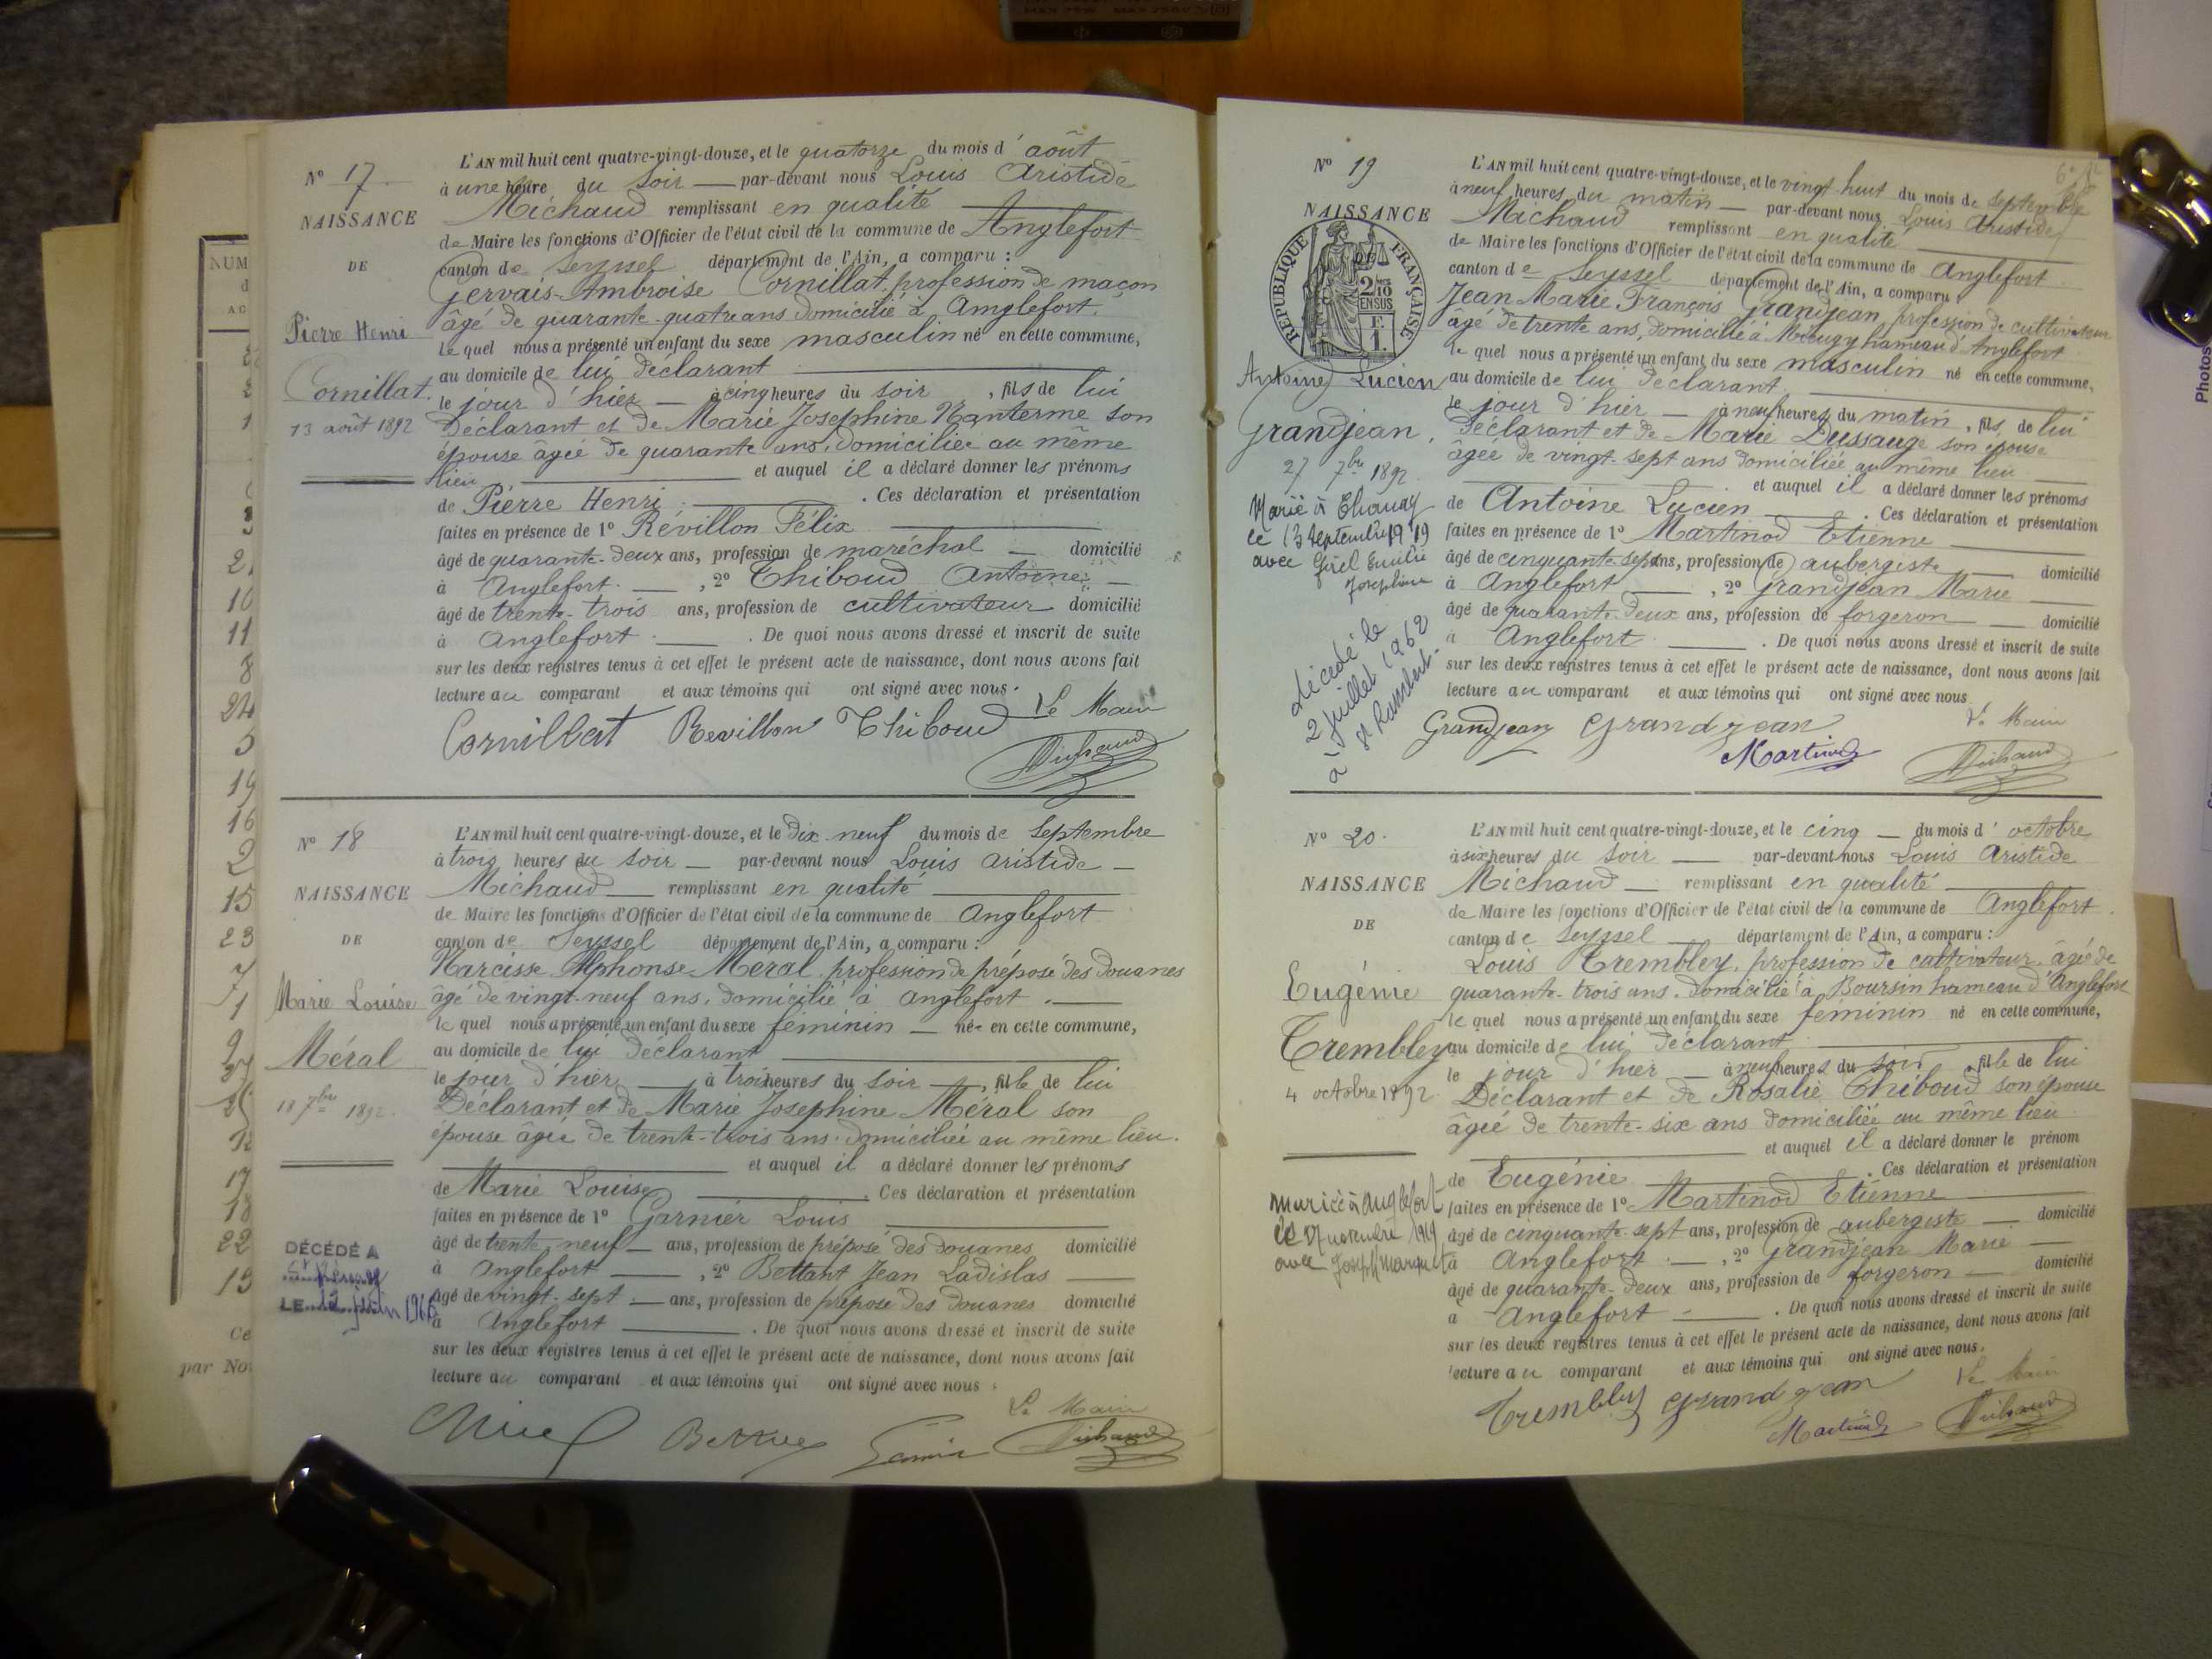 N° 17
NAISSANCE
DE
Pierre Henri
Cornillat.
13 août 1892
L'AN mil huit cent quatre-vingt-douze, et le quatorze du mois d' août
à une heure du soir par-devant nous Louis Aristide
Michaud remplissant en qualité
de Maire les fonctions d'Officier de l'état civil de la commune de Anglefort
canton de Seyssel département de l'Ain, a comparu :
Gervais-Ambroise Cornillat, profession de maçon
âgé de quarante-quatre ans domicilié à Anglefort.
le quel nous a présenté un enfant du sexe masculin né en cette commune,
au domicile de lui déclarant
le jour d'hier à cinq heures du soir, fils de lui
Déclarant et de Marie Josephine Nanterme son
épouse âgée de quarante ans, domiciliée au même
lieu et auquel il a déclaré donner les prénoms
de Pierre Henri. Ces déclaration et présentation
faites en présence de 1° Révillon Félix
âgé de quarante-deux ans, profession de maréchal domicilié
à Anglefort, 2° Thiboud Antoine
âgé de trente-trois ans, profession de cultivateur domicilié
à Anglefort. De quoi nous avons dressé et inscrit de suite
sur les deux registres tenus à cet effet le présent acte de naissance, dont nous avons fait
lecture au comparant et aux témoins qui ont signé avec nous.
Le Maire
Cornillat Revillon Thiboud
Michaud
N° 18
NAISSANCE
DE
Marie Louise
Méral
18 7bre 1892.
DÉCÉDÉ A
LE 12 juin 1966
L'AN mil huit cent quatre-vingt-douze, et le dix-neuf du mois de Septembre
à trois heures du soir par-devant nous Louis Aristide
Michaud remplissant en qualité
de Maire les fonctions d'Officier de l'état civil de la commune de Anglefort
canton de Seyssel département de l'Ain, a comparu :
Narcisse Alphonse Méral profession de préposé des Douanes
âgé de vingt-neuf ans, domicilié à Anglefort.
le quel nous a présenté un enfant du sexe féminin née en cette commune,
au domicile de lui déclarant
le jour d'hier à trois heures du soir, fille de lui
Déclarant et de Marie Josephine Méral son
épouse âgée de trente-trois ans, domiciliée au même lieu.
et auquel il a déclaré donner les prénoms
de Marie Louise. Ces déclaration et présentation
faites en présence de 1° Garnier Louis
âgé de trente-neuf ans, profession de préposé des Douanes domicilié
à Anglefort, 2° Bettant Jean Ladislas
âgé de vingt-sept ans, profession de préposé des Douanes domicilié
à Anglefort. De quoi nous avons dressé et inscrit de suite
sur les deux registres tenus à cet effet le présent acte de naissance, dont nous avons fait
lecture au comparant et aux témoins qui ont signé avec nous.
Le Maire
Michaud
N° 19
NAISSANCE
DE
RÉPUBLIQUE FRANÇAISE
2/10
EN SUS
Antoine Lucien
Grandjean.
27 7bre 1892.
Marié à Chanay
le 13 septembre 1919
avec Girel Emilie
Joséphine
décédé le
2 juillet 1962
à St Rambert.
L'AN mil huit cent quatre-vingt-douze, et le vingt huit du mois de Septembre
à neuf heures du matin par-devant nous Louis Aristide
Michaud remplissant en qualité
de Maire les fonctions d'Officier de l'état civil de la commune de Anglefort
canton de Seyssel département de l'Ain, a comparu :
Jean Marie François Grandjean, profession de cultivateur
âgé de trente ans, domicilié à Mieugy hameau d'Anglefort
le quel nous a présenté un enfant du sexe masculin né en cette commune,
au domicile de lui déclarant
le jour d'hier à neuf heures du matin, fils de lui
Déclarant et de Marie Dussauge son épouse
âgée de vingt-sept ans domiciliée au même lieu
et auquel il a déclaré donner les prénoms
de Antoine Lucien. Ces déclaration et présentation
faites en présence de 1° Martinod Etienne
âgé de cinquante-sept ans, profession de aubergiste domicilié
à Anglefort, 2° Grandjean Marie
âgé de quarante-deux ans, profession de forgeron domicilié
à Anglefort. De quoi nous avons dressé et inscrit de suite
sur les deux registres tenus à cet effet le présent acte de naissance, dont nous avons fait
lecture au comparant et aux témoins qui ont signé avec nous
Le Maire
Grandjean Grandjean
Martinod
Michaud
N° 20.
NAISSANCE
DE
Eugénie
Trembley
4 octobre 1892
Mariée à Anglefort
le novembre 1919
avec Joseph
L'AN mil huit cent quatre-vingt-douze, et le cinq du mois d' octobre
à six heures du soir par-devant nous Louis Aristide
Michaud remplissant en qualité
de Maire les fonctions d'Officier de l'état civil de la commune de Anglefort.
canton de Seyssel département de l'Ain, a comparu :
Louis Trembley, profession de cultivateur âgé de
quarante-trois ans, domicilié à Boursin hameau d'Anglefort
le quel nous a présenté un enfant du sexe féminin né en cette commune,
au domicile de lui déclarant
le jour d'hier à neuf heures du soir, fille de lui
Déclarant et de Rosalie Thiboud son épouse
âgée de trente-six ans domiciliée au même lieu
et auquel il a déclaré donner le prénom
de Eugénie. Ces déclaration et présentation
faites en présence de 1° Martinod Etienne
âgé de cinquante-sept ans, profession de aubergiste domicilié
à Anglefort, 2° Grandjean Marie
âgé de quarante-deux ans, profession de forgeron domicilié
à Anglefort. De quoi nous avons dressé et inscrit de suite
sur les deux registres tenus à cet effet le présent acte de naissance, dont nous avons fait
lecture au comparant et aux témoins qui ont signé avec nous.
Le Maire
Trembley Grandjean
Martinod
Michaud